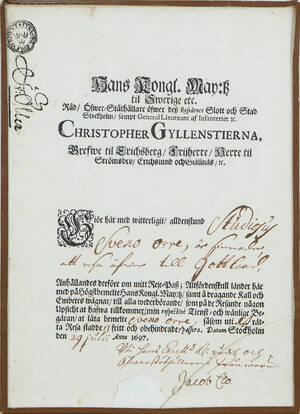 Hans Kongl. May:tz
til Swerige etc.
Råd/ Öfwer-Ståthållare öfwer deß Residence Slott och Stad
Stockholm/ sampt General Lieutnant af Infanteriet &c.
CHRISTOPHER GYLLENSTIERNA,
Grefwe til Erichsberg/ Frijherre/ Herre til
Strömsbro/ Erichsund och Giällnäs/ &c.
Giör här med witterligit/ alldenstund Studiosus
Sveno Orre, är sinnader
att resa öfwer till Gottland
Anhållandes derföre om mitt Rese-Paß; Altfördenskull länder här
med på Högstbemelte Hans Kongl. May:tz/ samt å dragande Kall och
Embetes wägnar, til alla wederbörande/ som på de Resande någon
Upsicht at hafwa tillkommer/ min respective Tienst- och wänlige Be-
gäran/ at låta bemelte Sveno Orre, såsom uti
räta Resa stadder/ fritt och obehindrade/ passera. Datum Stockholm
den 29 Julii Anno 1697.
Uti Hans
Jacob